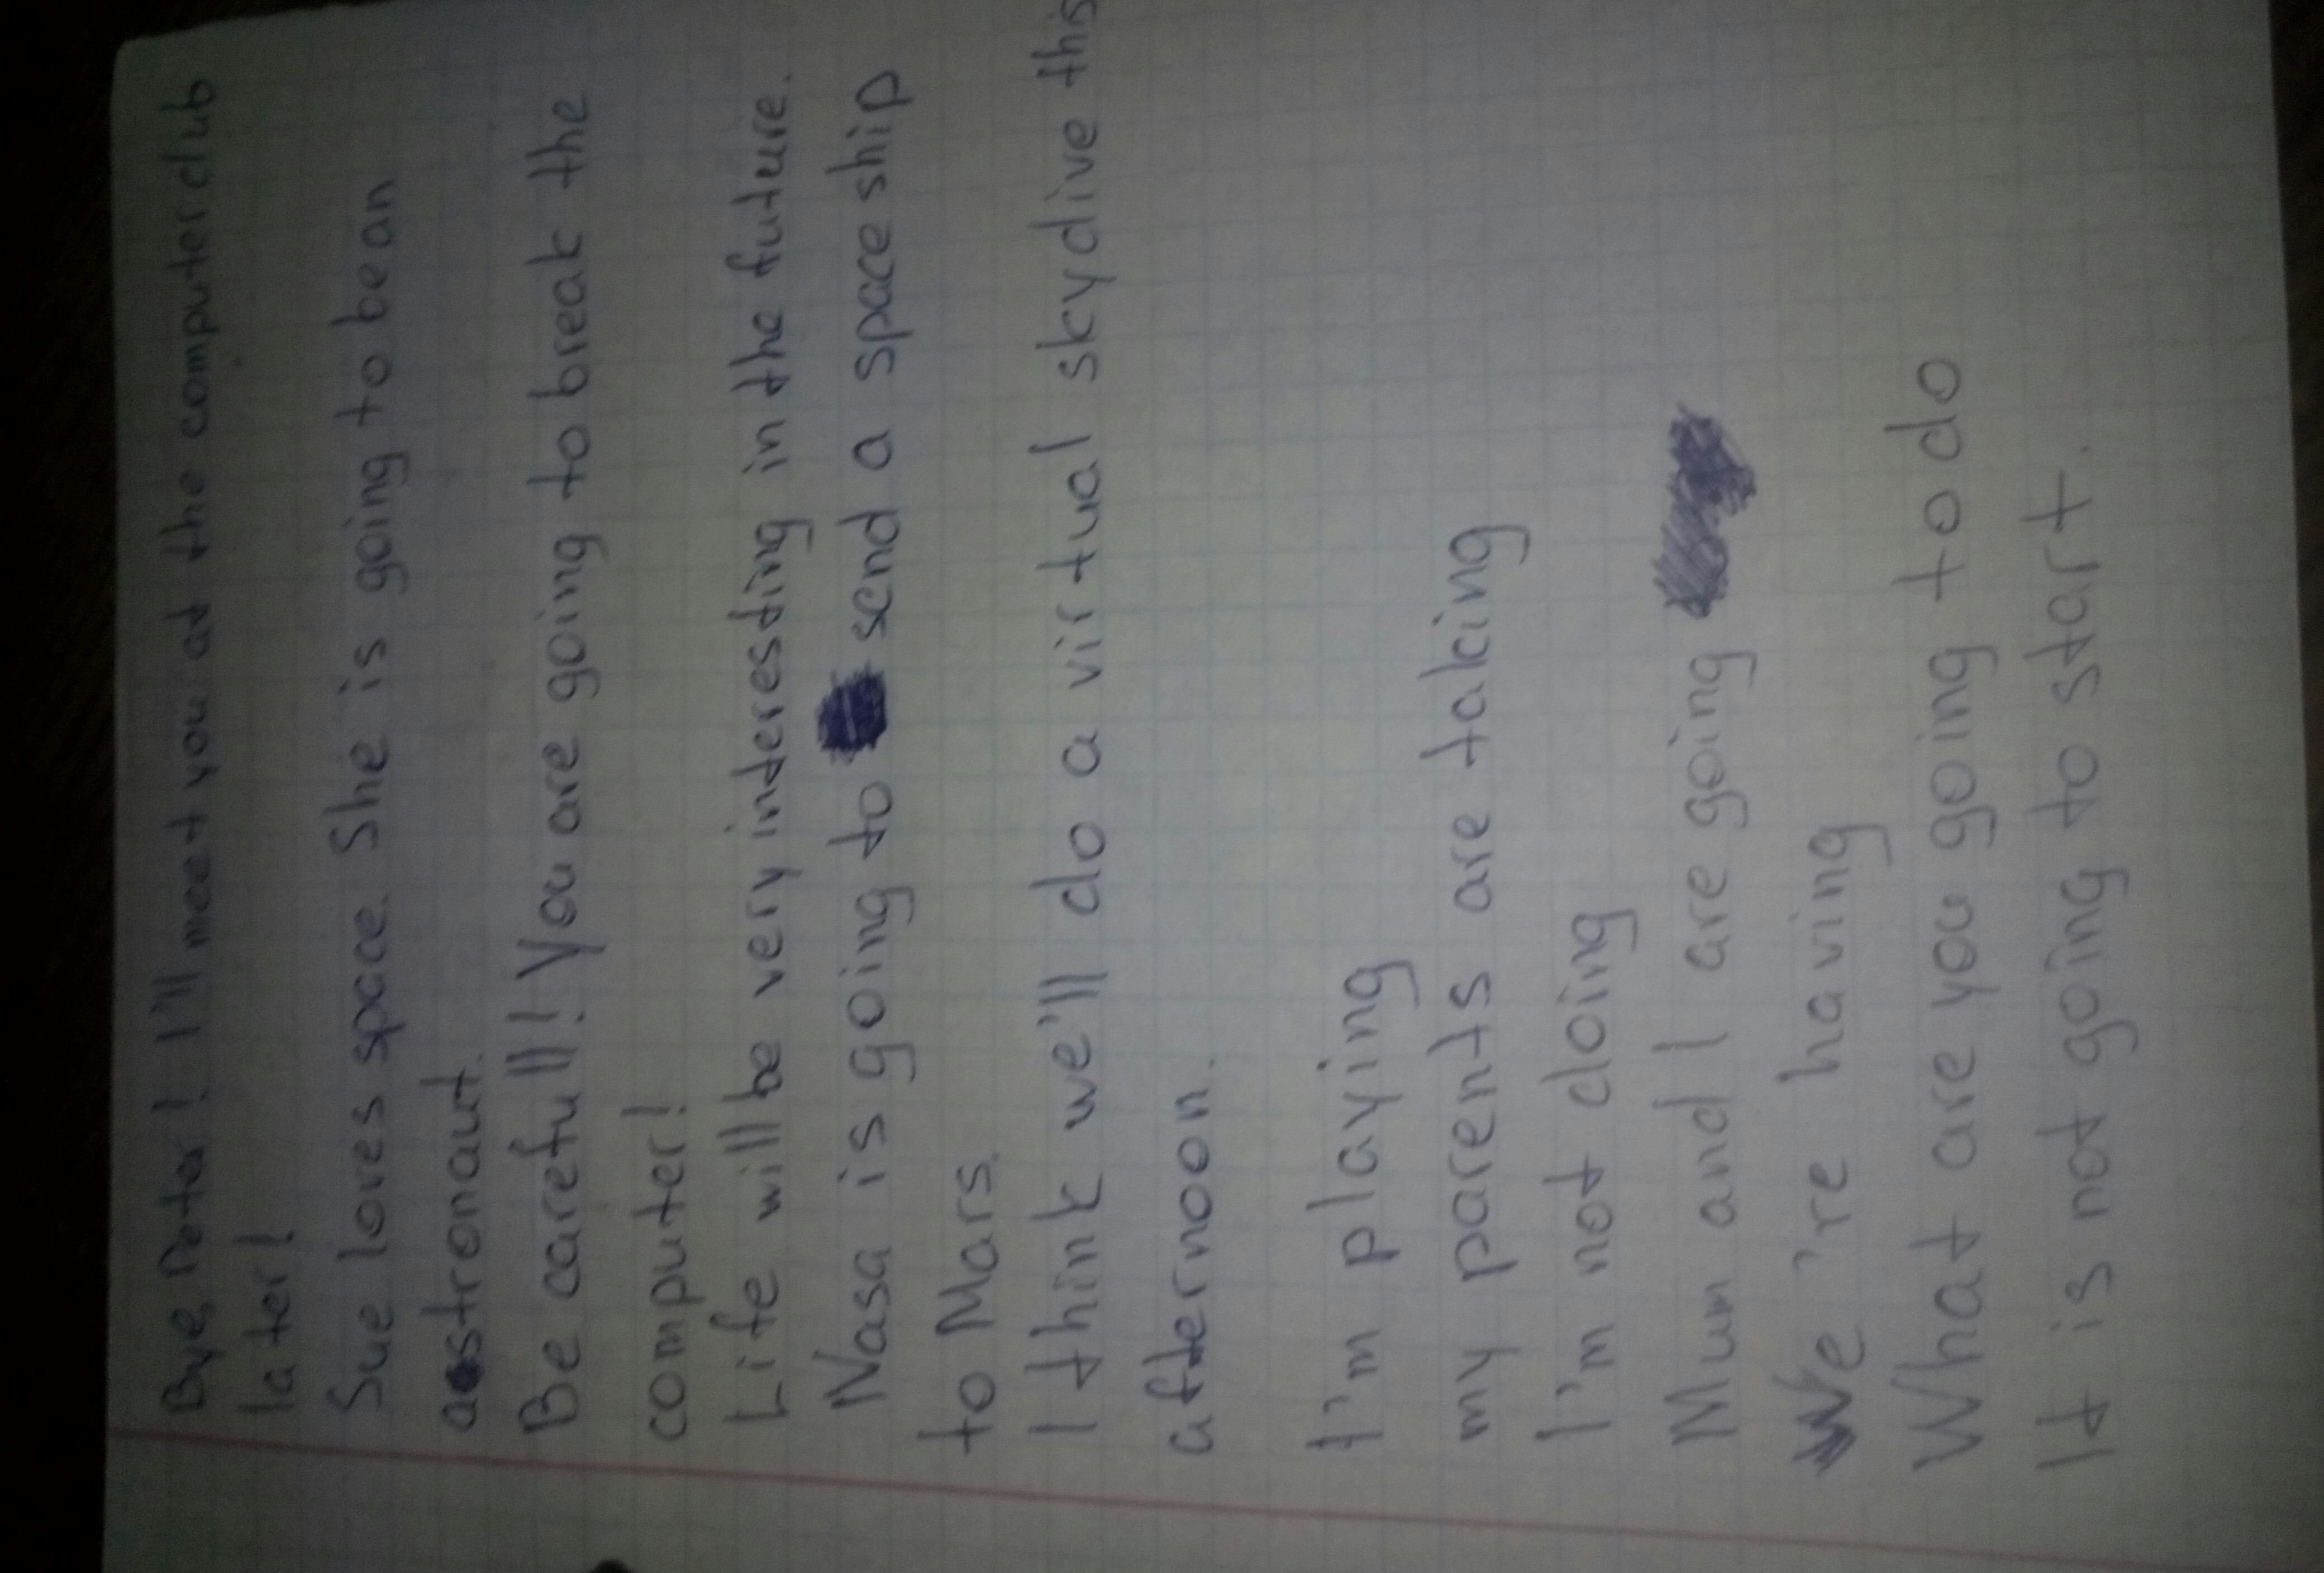 Bye, Peter! I'll meet you at the computer club
later!
Sue loves space. She is going to be an
astronaut.
Be carefull! You are going to break the
computer!
Life will be very interesting in the future.
Nasa is going to send a space ship
to Mars.
I think we'll do a virtual skydive this
afternoon.
I'm playing
my parents are taking
I'm not doing
Mum and I are going
We're having
What are you going to do
It is not going to start.